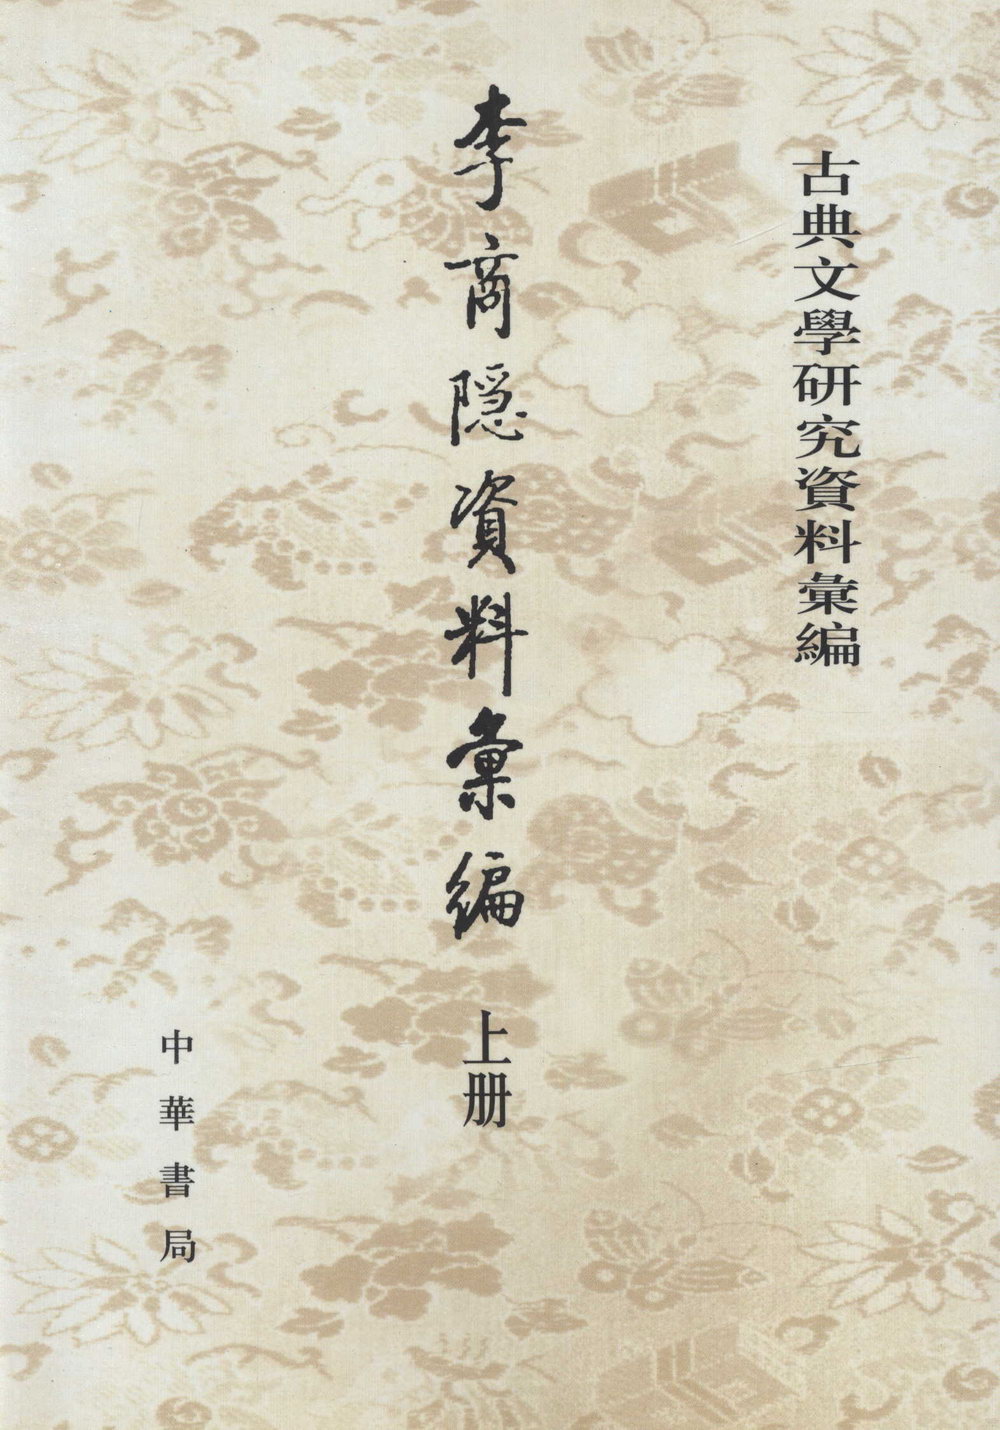 古典文學研究資料彙編
李商隱資料彙編 上册
中華書局